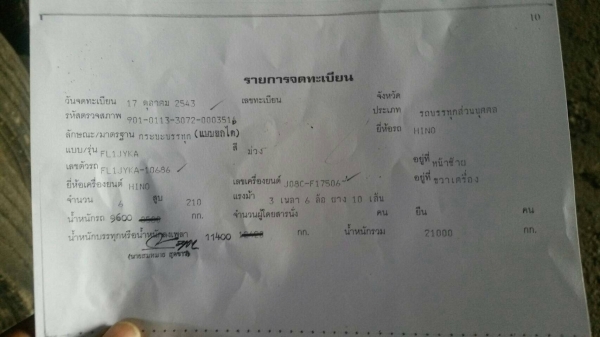 10
รายการจดทะเบียน
วันจดทะเบียน 17 ตุลาคม 2543 เลขทะเบียน จังหวัด
รหัสตรวจสภาพ 901-0113-3072-0003516 ประเภท รถบรรทุกส่วนบุคคล
ลักษณะ/มาตรฐาน กระบะบรรทุก (แบบยกได้) ยี่ห้อรถ HINO
แบบ/รุ่น FL1JYKA สี ม่วง
เลขตัวรถ FL1JYKA-10686 อยู่ที่ หน้าซ้าย
ยี่ห้อเครื่องยนต์ HINO เลขเครื่องยนต์ J08C-F17506 อยู่ที่ ขวาเครื่อง
จำนวน 6 สูบ 210 แรงม้า 3 เพลา 6 ล้อ ยาง 10 เส้น
น้ำหนักรถ 9600 กก. จำนวนผู้โดยสารนั่ง คน ยืน คน
น้ำหนักบรรทุกหรือน้ำหนักลงเพลา 11400 กก. น้ำหนักรวม 21000 กก.